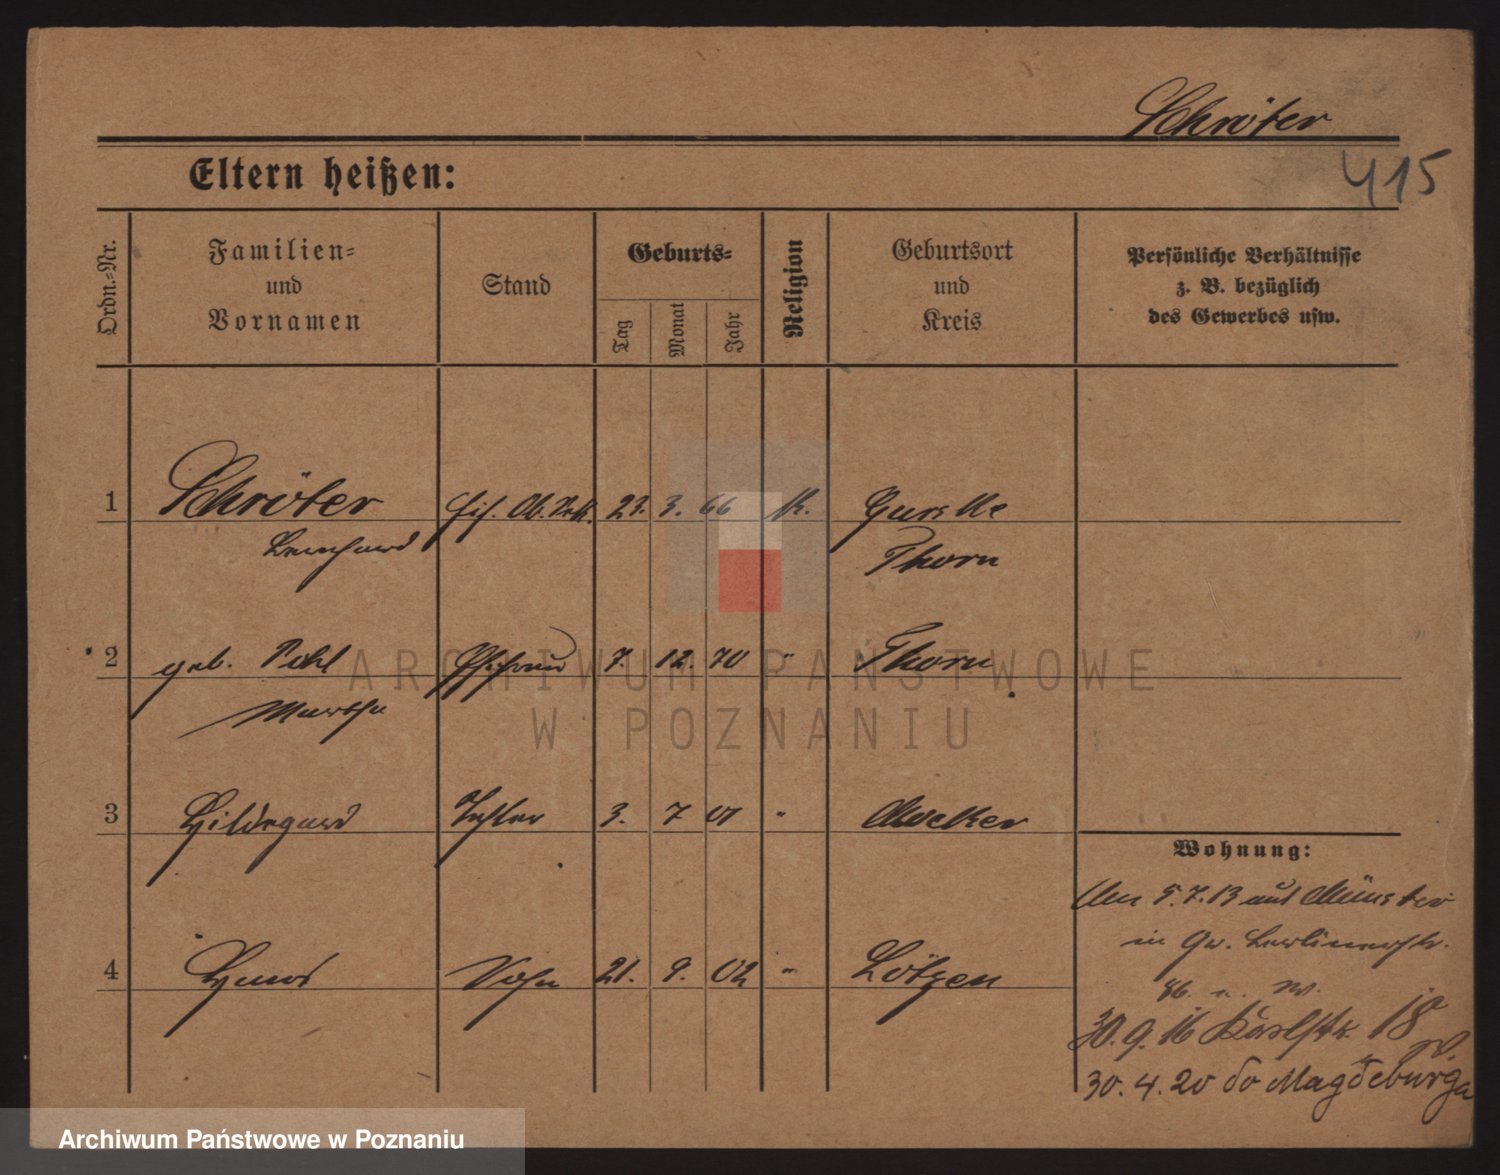 Schröter
415
Eltern heißen:
Ordn.-Nr.
Familien-
und
Vornamen
Stand
Geburts-
Tag
Monat
Jahr
Religion
Geburtsort
und
Kreis
Persönliche Verhältnisse
z. B. bezüglich
des Gewerbes usw.
1 Schröter 23. 3. 66 K. Gurske
Bernhard Thorn
2 geb. Pohl Ehefrau 7. 12. 70 " Thorn
Martha
3 Hildegard Tochter 3. 7 01 " Mocker
Wohnung:
5.7.13 aus Münster
in Gw. Berlinerstr.
4 Hans Sohn 21. 9. 02 " Lötzen
86.
30.9.16 Karlstr. 18
30.4.20 do Magdeburg
ARCHIWUM PAŃSTWOWE
W POZNANIU
Archiwum Państwowe w Poznaniu